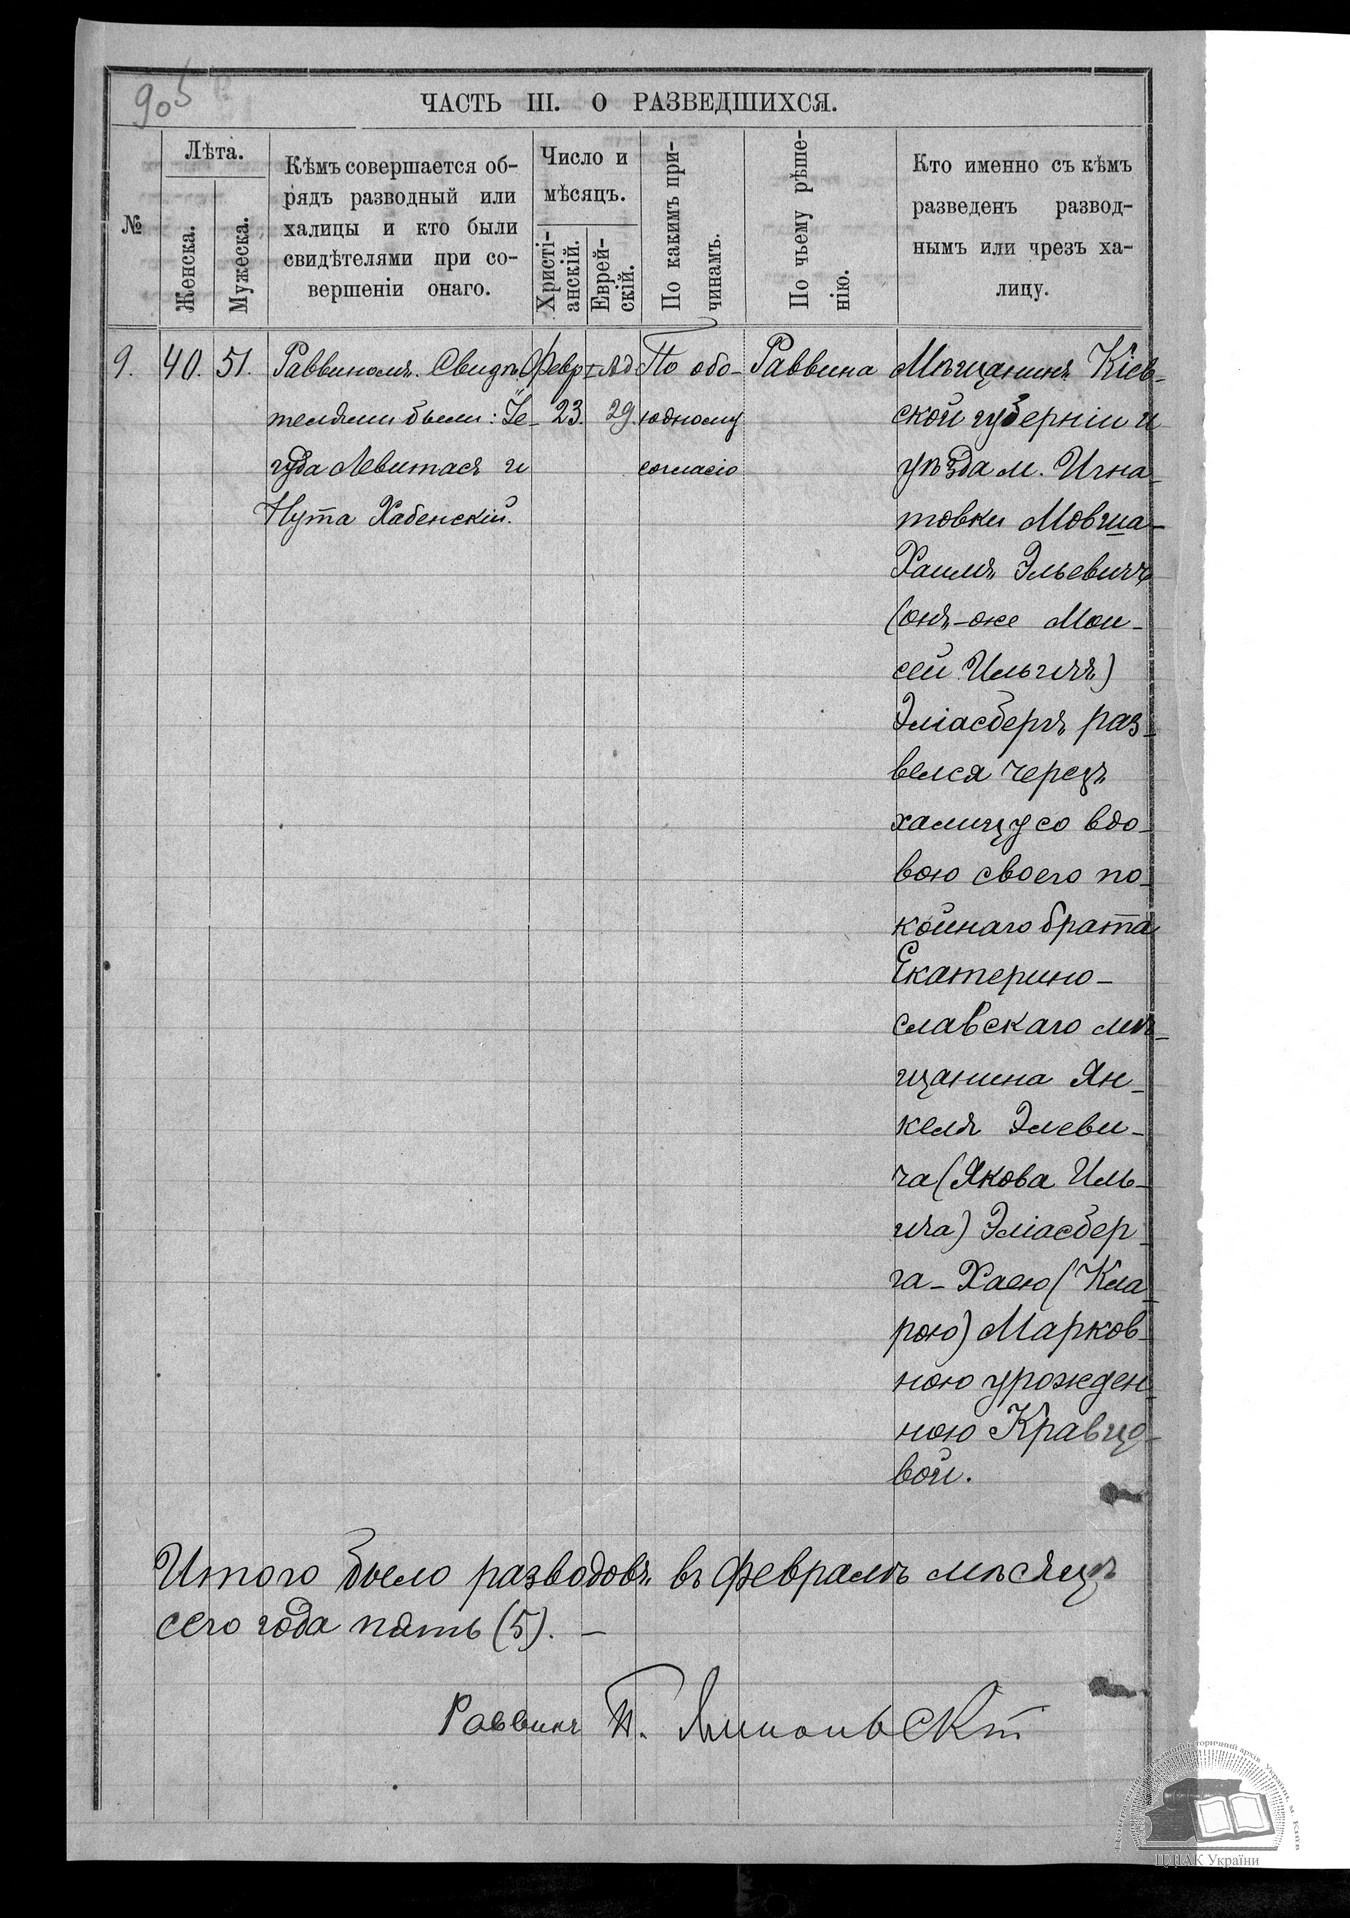 905
ЧАСТЬ III. О РАЗВЕДШИХСЯ.
№
Лѣта.
Женска.
Мужеска.
Кѣмъ совершается об-
рядъ разводный или
халицы и кто были
свидѣтелями при со-
вершеніи онаго.
Число и
мѣсяцъ.
Христі-
анскій.
Еврей-
скій.
По какимъ при-
чинамъ.
По чьему рѣше-
нію.
Кто именно съ кѣмъ
разведенъ развод-
нымъ или чрезъ ха-
лицу.
9.
40.
51.
Раввиномъ. Свидѣ-
телями были: Іе-
гуда Левитасъ и
Нута Хабенскій.
Февр
23.
I Ад
29.
По обо-
юдному
согласію
Раввина
Мѣщанинъ Кіев-
ской губерніи и
уѣзда м. Игна-
товки Мовша-
Хаимъ Эльевичъ
(онъ-же Мои-
сей Ильичъ)
Эліасбергъ раз-
велся черезъ
халицу со вдо-
вою своего по-
койнаго брата
Екатерино-
славскаго мѣ-
щанина Ян-
келя Элеви-
ча (Якова Иль-
ича) Эліасбер-
га - Хаею (Кла-
рою) Марков-
ною урожден-
ною Кравцо-
вой.
Итого было разводовъ въ Февралѣ мѣсяцѣ
сего года пять (5). —
Раввинъ П.
ЦДІАК України